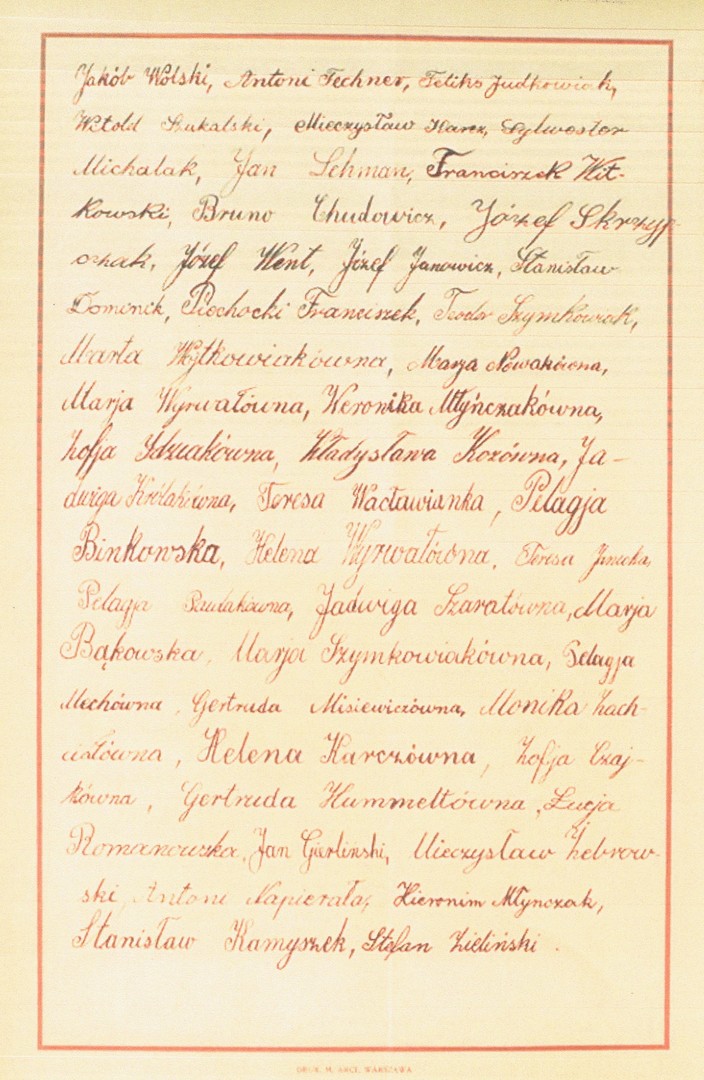 Jakób Wolski, Antoni Techner, Feliks Judkowiak,
Witold Szukalski, Mieczysław Karcz, Sylwester
Michalak, Jan Lehman, Franciszek Wit-
kowski, Bruno Chudowicz, Józef Skrzyp-
czak, Józef Went, Józef Janowicz, Stanisław
Dominik, Piechocki Franciszek, Teodor Szymkowiak,
Marta Wytkowiakówna, Marja Nowakówna,
Marja Wyrwałówna, Weronika Młyńczakówna,
Zofja Idziakówna, Władysława Kozówna, Ja-
dwiga Królakówna, Teresa Wacławianka, Pelagja
Binkowska, Helena Wyrwałówna, Teresa
Pelagja Pawlakówna, Jadwiga Szarałówna, Marja
Bąkowska, Marja Szymkowiakówna, Pelagja
Mechówna, Gertruda Misiewiczówna, Monika Zach-
Helena Karczówna, Zofja Czaj-
kówna, Gertruda Hummeltówna, Łucja
Romanowska, Jan Gierliński, Mieczysław Żebrow-
ski, Antoni Napierała, Hieronim Młynczak,
Stanisław Kamyszek, Stefan Zieliński.
DRUK. M. ARCT, WARSZAWA